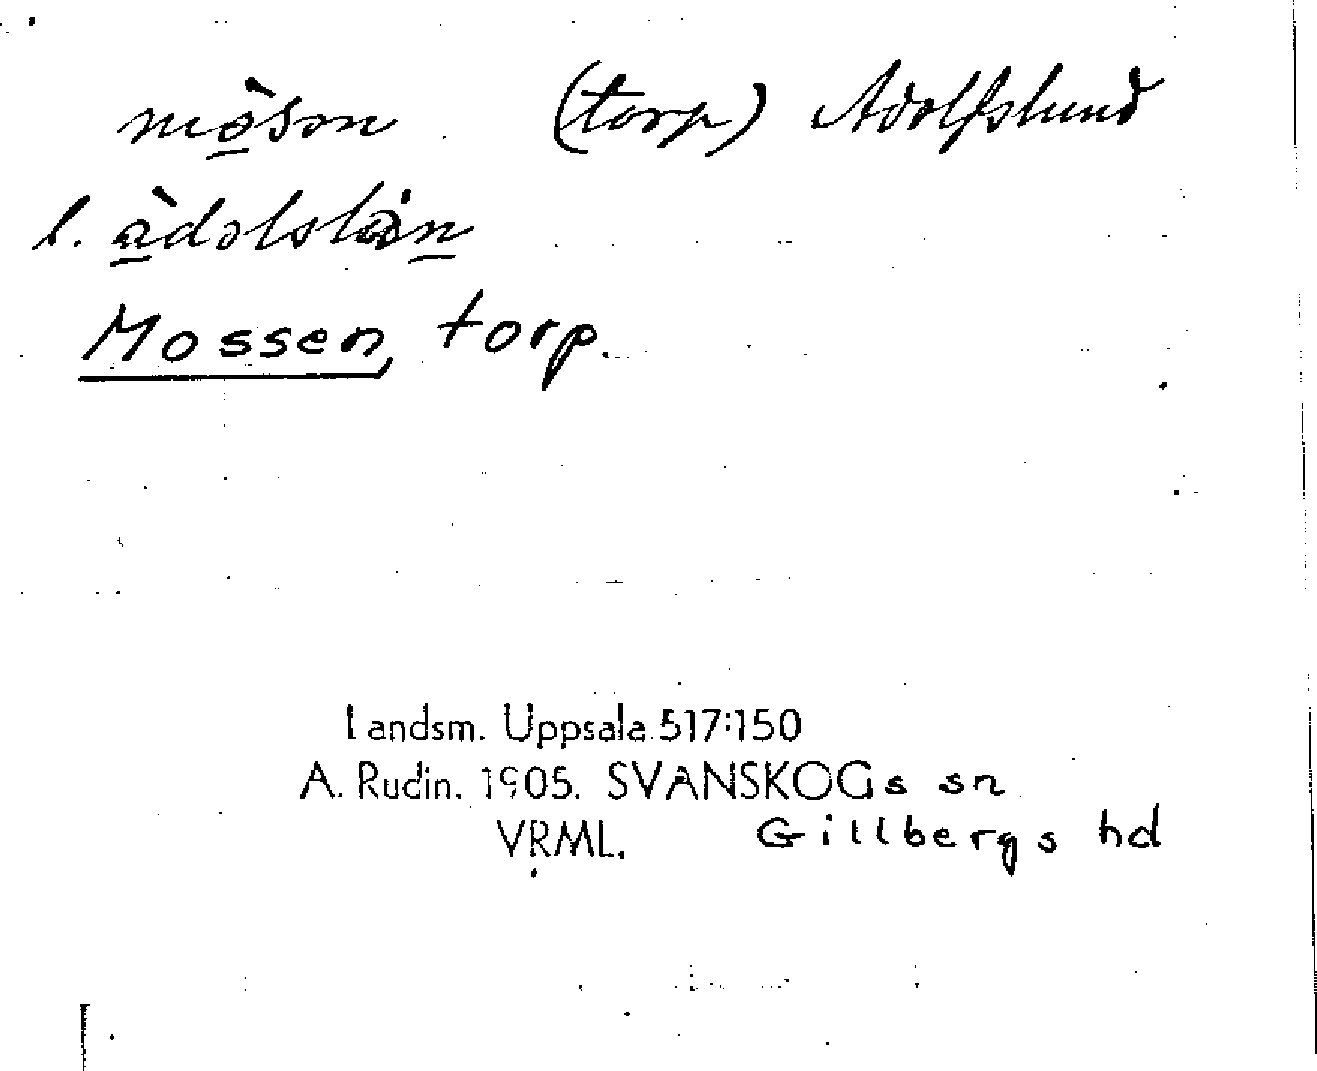 mòson (torp) Adolfslund
l. àdolslàn
Mossen, torp.
Landsm. Uppsala 517:150
A. Rudin. 1905. SVANSKOGs sn
VRML. Gillbergs hd